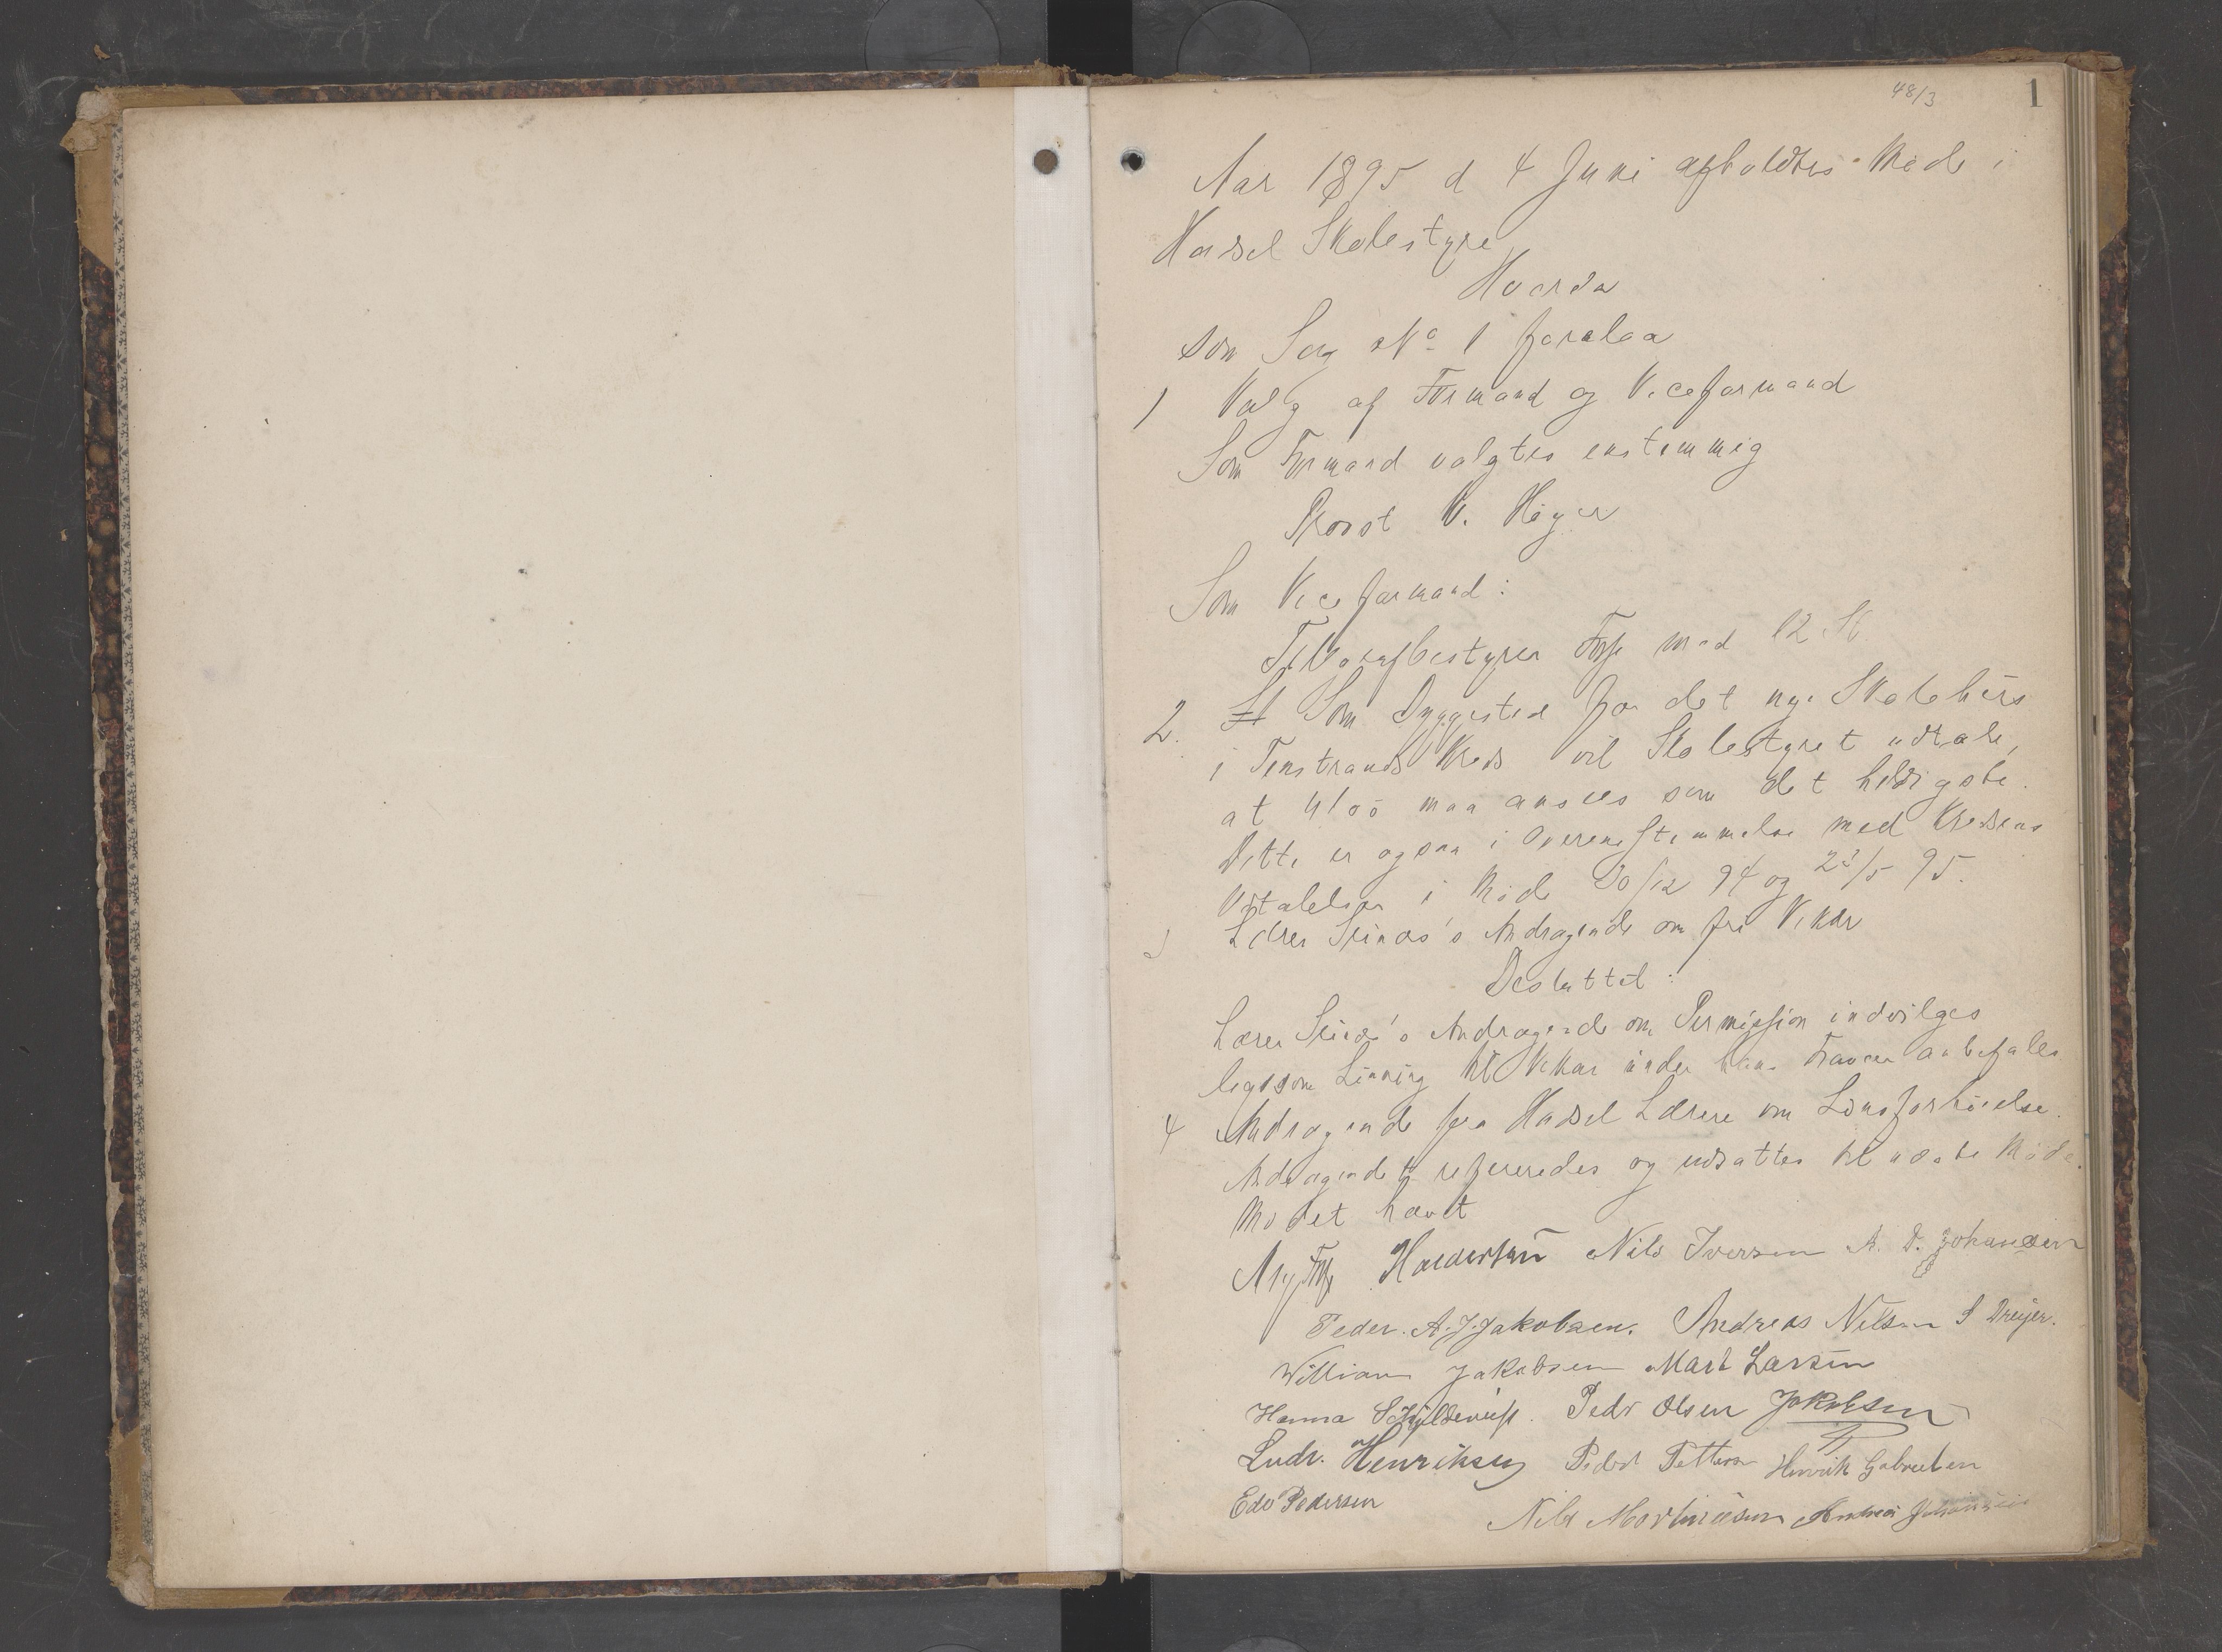 48/3
1
Aar 1895 d 4 Juni afholdtes Møde i
Hadsel Skolestyre
Hvorda
som Sag No 1 forelaa
1 Valg af Formand og Viceformand
Som Formand valgtes enstemmig
Provst V. Høyer
Som Viceformand:
Telegrafbestyrer Foss med 12 St
2. St Som Byggested for det nye Skolehus
i Kreds vil Skolestyret udtale,
at maa ansees som det heldigste.
Dette er ogsaa i Overensstemmelse med Kredsens
Udtalelser i Møde 30/12 94 og /5 95.
3 Lærer Steinæs's Andragende om fri Vikar
Besluttet:
Lærer Andragende om Permission indvilges
ligesom Lønning til Vikar under hans Fravær anbefales
4 Andragende fra Hadsel Lærere om Lønsforhøielse.
Andragendet refereredes og udsattes til næste Møde.
Mødet hævet
Foss Nils Iversen A. D. Johansen
Peder. A. J. Jakobsen. Andreas Nilsen S Dreyer.
William Jakobsen Mart Larsen
Hanna Pedr Olsen Jakobsen
Ludv. Henriksen Peder Pettersen Henrik Gabrielsen
Edv Pedersen
Nils Martinussen Andreas Johansen